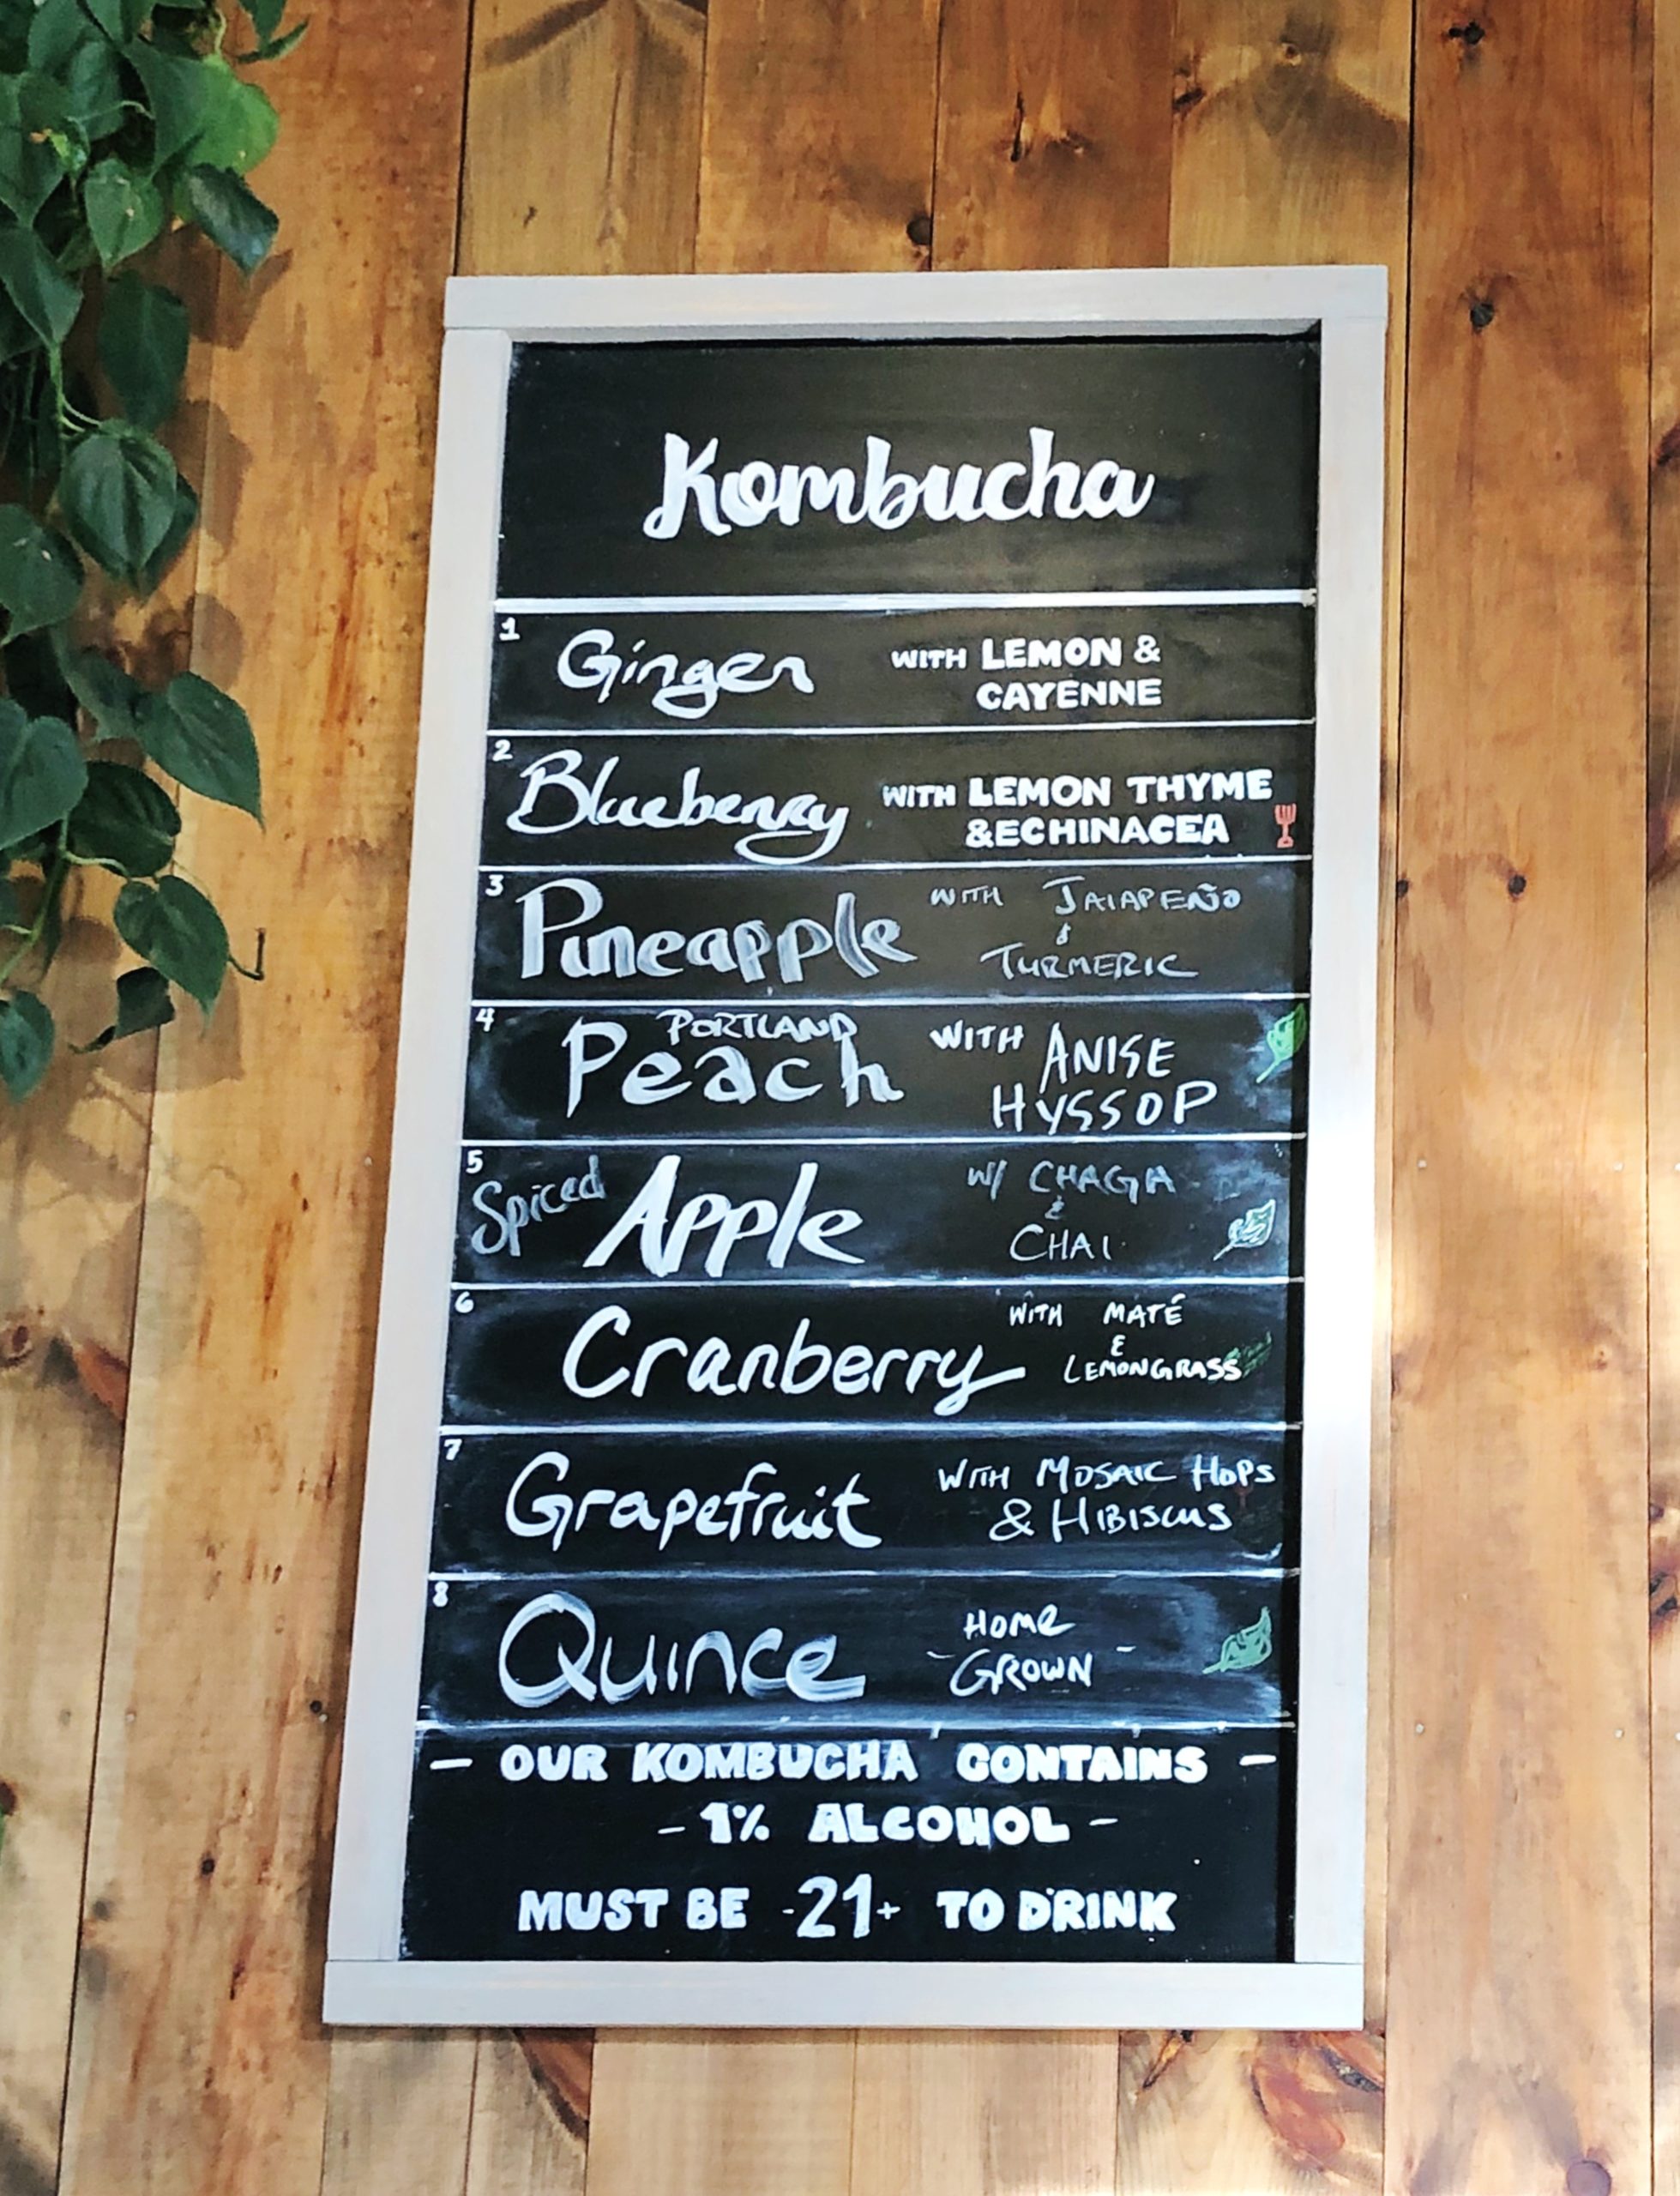 Kombucha
1
Ginger WITH LEMON &
CAYENNE
2
Blueberry WITH LEMON THYME
&ECHINACEA
3
Pineapple WITH JALAPEÑO
&
TURMERIC
4
PORTLAND
Peach WITH ANISE
HYSSOP
5
Spiced Apple W/ CHAGA
&
CHAI
6
Cranberry WITH MATÉ
&
LEMONGRASS
7
Grapefruit WITH MOSAIC HOPS
& HIBISCUS
8
Quince HOME
- GROWN -
- OUR KOMBUCHA CONTAINS -
- 1% ALCOHOL -
MUST BE -21+ TO DRINK